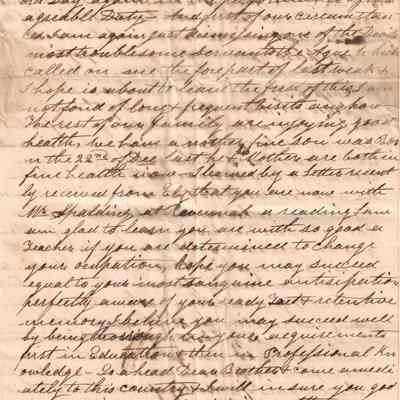 agreable Duty And first of our circumstan
ces I am again just dismissing one of the Devils
most troublesome servants the Ague which
called on me the forepart of last week &
I hope is about to leave the rest of this I am
not fond of long & frequent visits any how
The rest of our Family are injoying good
health, We have another fine Son was Born
on the 22nd of Dec last he & Mother are both in
fine health now I learned by a Letter resent
ly received from Elizt that you are now with
Mr Spalding at Ravennah a reading I am
am glad to learn you are with so good a
Teacher if you are determined to change
your ocupation, hope you may succeed
equal to your most sanguine antisipation
perfectly aware of your ready & retentive
memory I believe you may succeed well
by being thorough in your acquirements
first in Education & then in Professional Kn
owledge - Go ahead Dear Brother & come immedi
ately to this country & I will insure you good